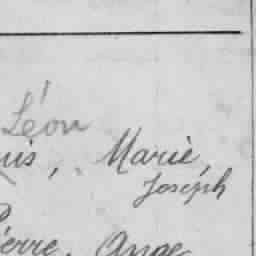 Léon
uis, Marie,
Joseph
Pierre, Ange